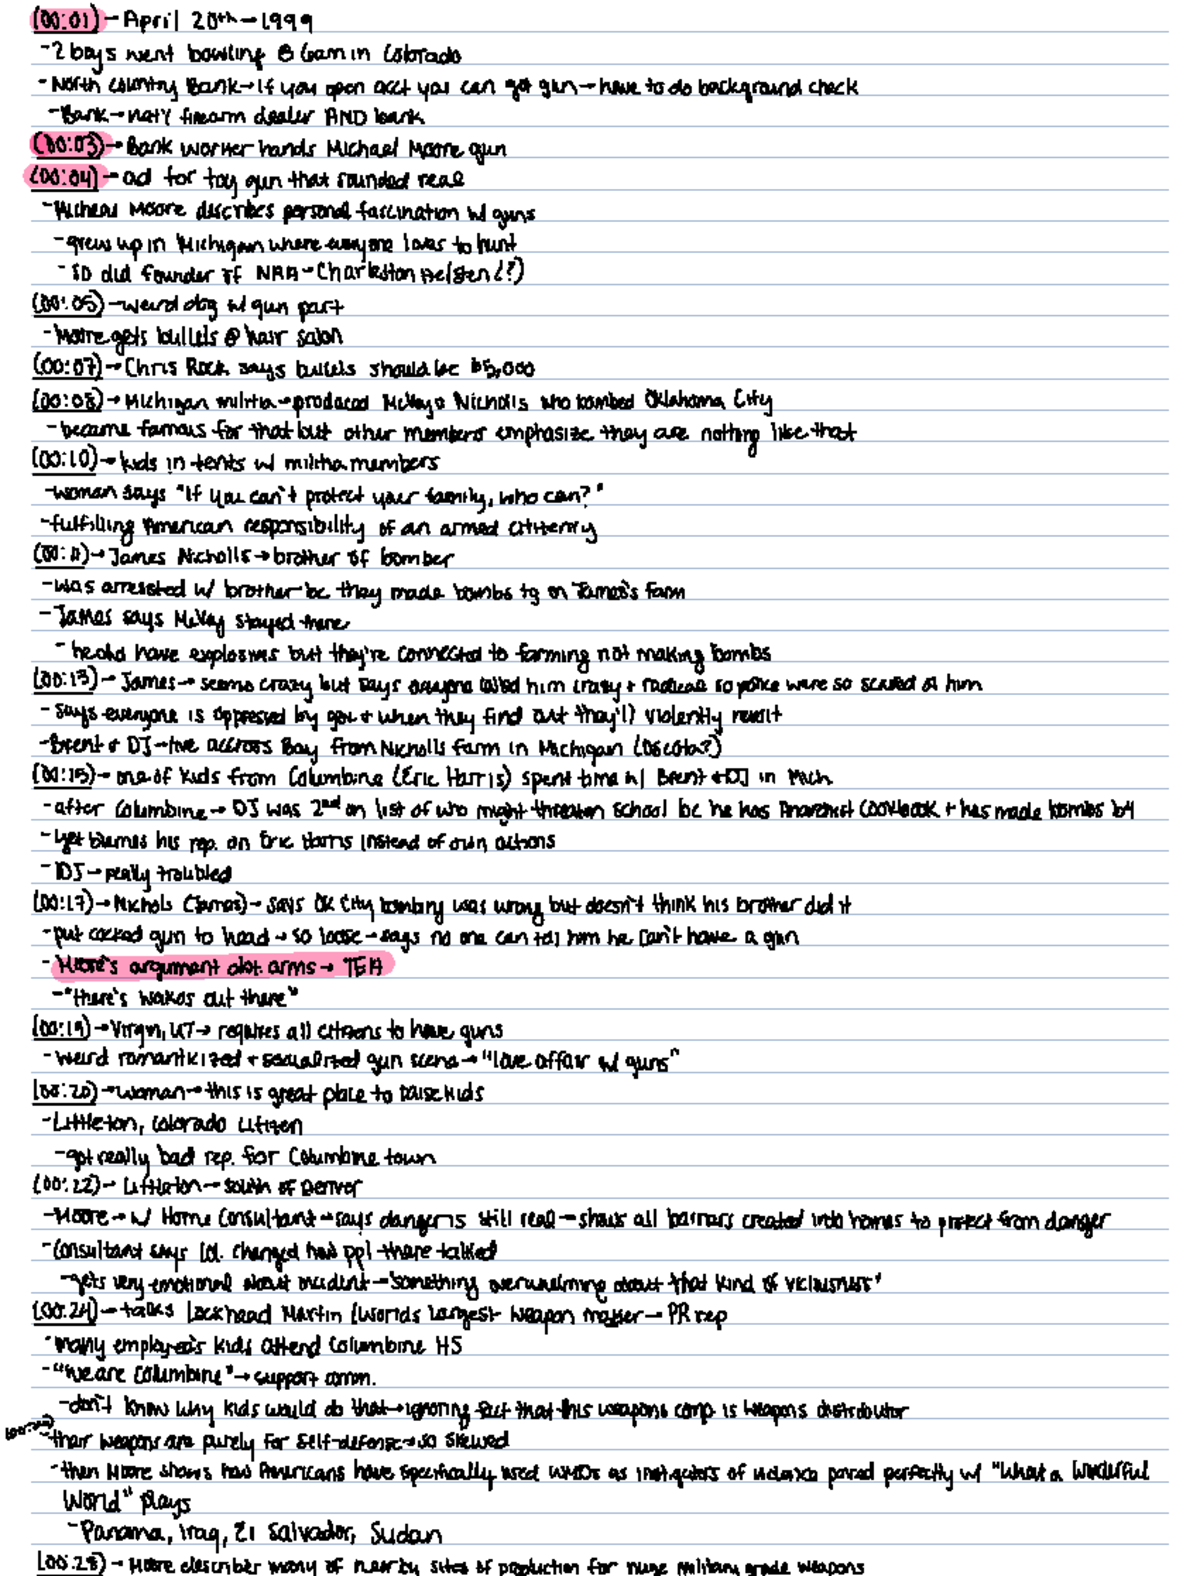 (00:01) - April 20th - 1999
- 2 boys went bowling @ 6am in Colorado
- North Country Bank → if you open acct you can get gun → have to do background check
- Bank → nat'l firearm dealer AND bank
(00:03) → Bank worker hands Michael Moore gun
(00:04) → ad for toy gun that sounded real
- Micheal Moore describes personal fascination w/ guns
- grew up in Michigan where everyone loves to hunt
- so did founder of NRA - Charleston (?)
(00:05) → weird dog w/ gun part
- Moore gets bullets @ hair salon
(00:07) → Chris Rock says bullets should be $5,000
(00:08) → Michigan militia → produced McVay + Nicholls who bombed Oklahoma City
- became famous for that but other members emphasize they are nothing like that
(00:10) → kids in tents w/ militia members
- woman says "If you can't protect your family, who can?"
- fulfilling American responsibility of an armed citizenry
(00:11) → James Nicholls → brother of bomber
- was arrested w/ brother bc they made bombs tg on James's farm
- James says McVay stayed there
- he did have explosives but they're connected to farming not making bombs
(00:13) → James → seems crazy but says everyone called him crazy + radical so police were so scared of him
- says everyone is oppressed by gov + when they find out they'll violently revolt
- Brent + DJ → live accross Bay from Nicholls farm in Michigan (Oscoda?)
(00:15) → one of kids from Columbine (Eric Harris) spent time w/ Brent + DJ in Mich
- after Columbine → DJ was 2nd on list of who might threaten school bc he has Anarchist Cookbook + has made bombs b4
- yet blames his rep. on Eric Harris instead of own actions
- DJ → really troubled
(00:17) → Nichols (James) → says OK City bombing was wrong but doesn't think his brother did it
- put cocked gun to head → so loose → says no one can tell him he can't have a gun
- Moore's argument abt. arms →
- "there's wakos out there"
(00:19) → Virgin, UT → requires all citizens to have guns
- weird romanticized + sexualized gun scene → "love affair w/ guns"
(00:20) → woman → this is great place to raise kids
- Littleton, Colorado citizen
- got really bad rep. for Columbine town
(00:22) - Littleton → South of Denver
- Moore → w/ Home Consultant → says danger is still real → shows all barriers created into homes to protect from danger
- Consultant says Col. changed how ppl there talked
- gets very emotional about incident → "something overwhelming about that kind of viciousness"
(00:24) → talks Lockhead Martin (Worlds largest weapon maker → PR rep
- many employee's kids attend Columbine HS
- "We are Columbine" → support comm.
- don't know why kids would do that → ignoring fact that this weapons comp is weapons distributor
- their weapons are purely for self-defense → so skewed
- then Moore shows how Americans have specifically used WMDs as instigators of violence paired perfectly w/ "What a Wonderful
World" plays
- Panama, Iraq, El Salvador, Sudan
(00:28) → Moore describes many of nearby sites of production for huge military grade weapons